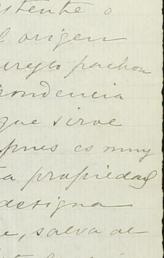 istente o
l origen
pachon
rondencia
que sirve
pues es muy
a propiedad
designa
e, salva de